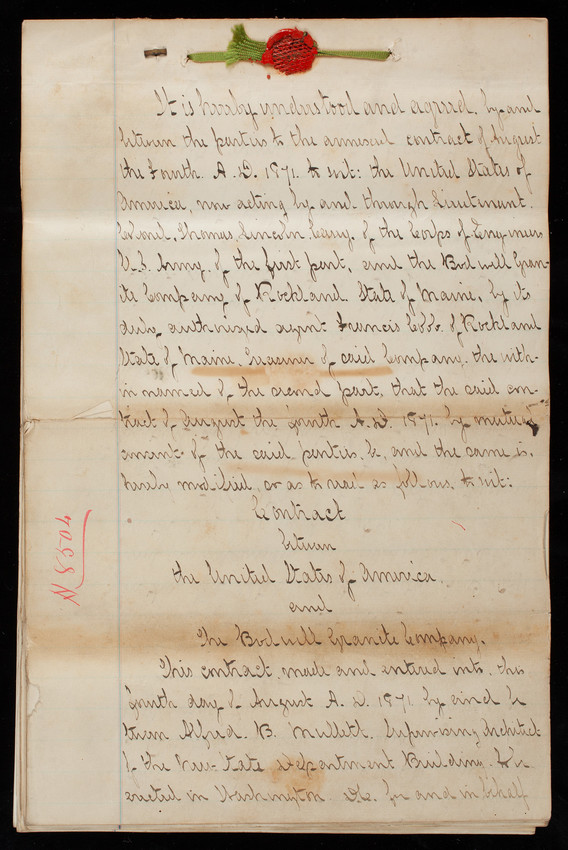 It is hereby understood and agreed, by and
between the parties to the annexed contract of August
the Fourth A. D. 1871. to wit: the United States of
America, now acting by and through Lieutenant.
Colonel, Thomas Lincoln Casey of the Corps of Engineers
U.S. Army, of the first part, and the Bodwell Gran-
ite Company of Rockland. State of Maine, by its
duly authorized agent Francis Cobb. of Rockland
State of Maine. Treasurer of said Company, the with-
in named of the second part, that the said con-
tract of August the fourth A. D. 1871. by mutual
consent of the said parties, be, and the same is,
hereby modified, so as to read as follows, to wit:
Contract
between
the United States of America.
and
The Bodwell Granite Company.
This contract, made and entered into, this
fourth day of August A. D. 1871. by and be
tween Alfred. B. Mullett. Supervising Architect
of the New State Department Building. to be
erected in Washington. D.C. for and in behalf